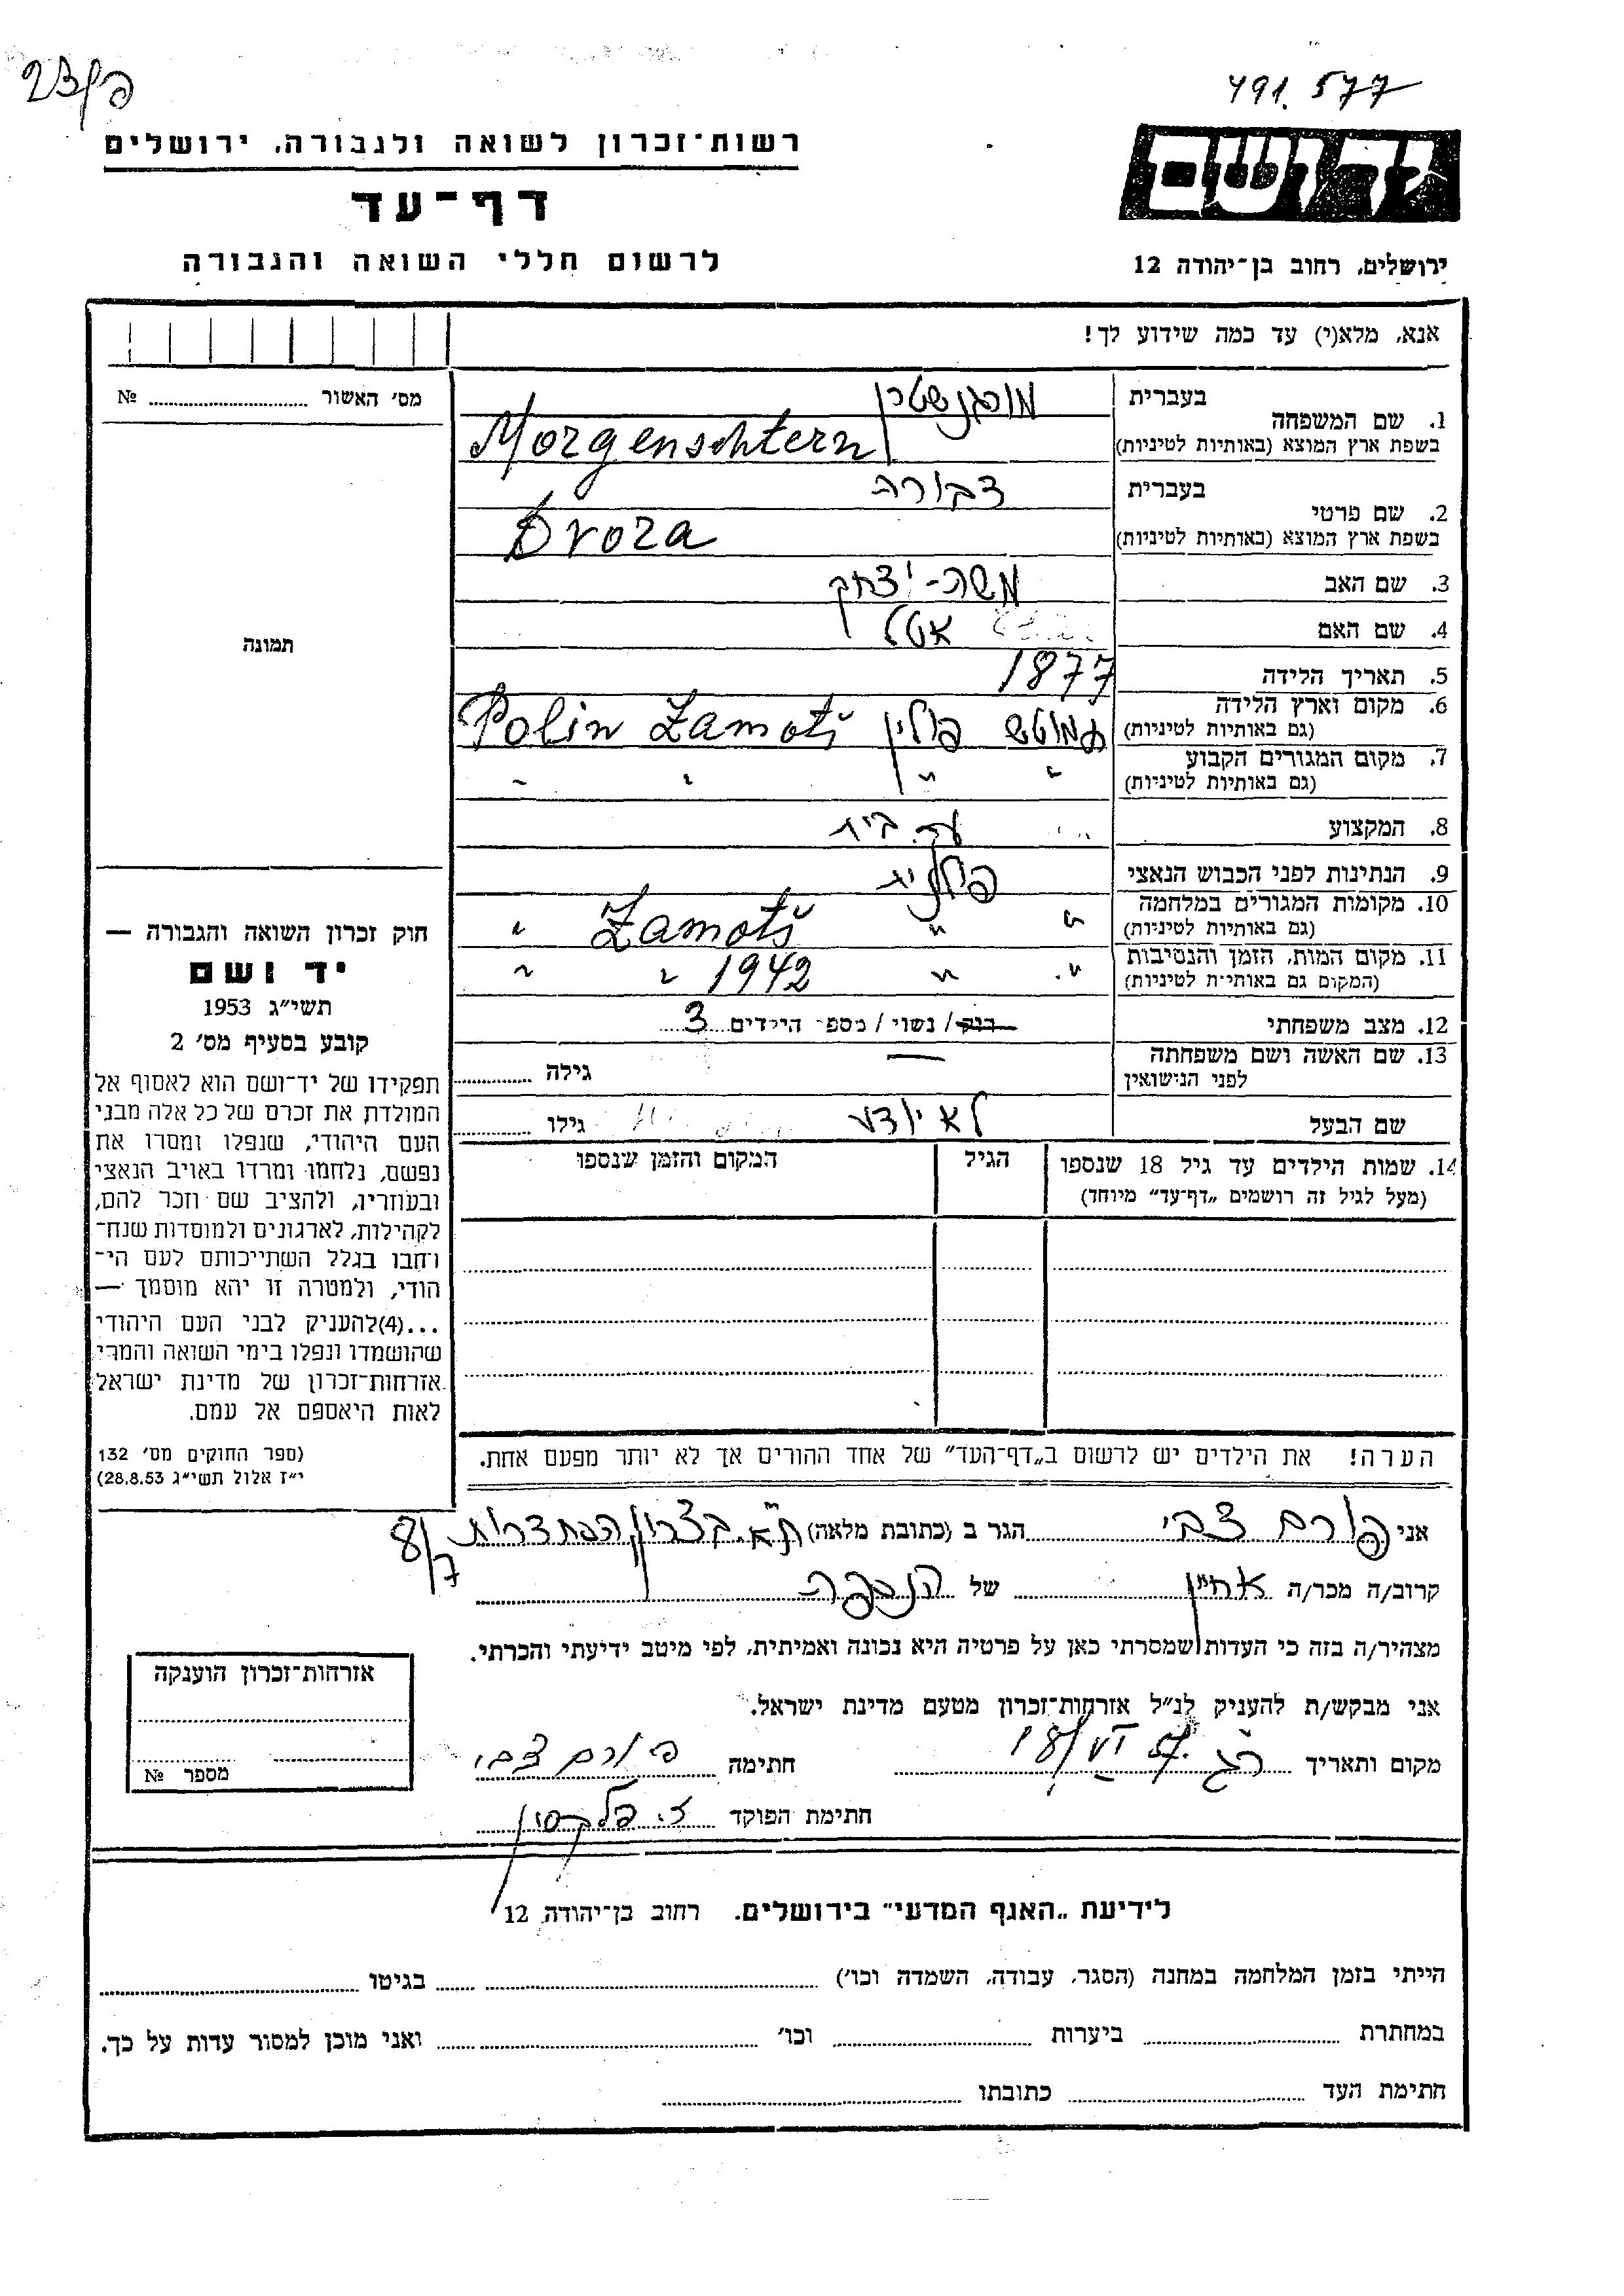 פ/239
491.577
רשות־זכרון לשואה ולגבורה, ירושלים
דף־עד
לרשום חללי השואה והגבורה
ידושם
ירושלים, רחוב בן־יהודה 12
אנא, מלא(י) עד כמה שידוע לך!
מס׳ האשור № ........
תמונה
1. שם המשפחה
בעברית מורגנשטרן
בשפת ארץ המוצא (באותיות לטיניות) Morgenschtern
2. שם פרטי
בעברית דבורה
בשפת ארץ המוצא (באותיות לטיניות) Dvora
3. שם האב משה-יצחק
4. שם האם אטל
5. תאריך הלידה 1877
6. מקום וארץ הלידה (גם באותיות לטיניות) זמוטש פולין Polin Zamotš
7. מקום המגורים הקבוע (גם באותיות לטיניות) " " " "
8. המקצוע עק. בית
9. הנתינות לפני הכבוש הנאצי פולנית
10. מקומות המגורים במלחמה (גם באותיות לטיניות) " " Zamotš "
11. מקום המות, הזמן והנסיבות (המקום גם באותיות לטיניות) " " 1942 " "
12. מצב משפחתי רוק / נשוי / מספר הילדים 3
13. שם האשה ושם משפחתה לפני הנישואין — גילה ........
שם הבעל לא יודע גילו ........
14. שמות הילדים עד גיל 18 שנספו (מעל לגיל זה רושמים „דף־עד” מיוחד)
הגיל
המקום והזמן שנספו
הערה! את הילדים יש לרשום ב„דף־העד” של אחד ההורים אך לא יותר מפעם אחת.
חוק זכרון השואה והגבורה —
יד ושם
תשי״ג 1953
קובע בסעיף מס׳ 2
תפקידו של יד־ושם הוא לאסוף אל
המולדת את זכרם של כל אלה מבני
העם היהודי, שנפלו ומסרו את
נפשם, נלחמו ומרדו באויב הנאצי
ובעוזריו, ולהציב שם וזכר להם,
לקהילות, לארגונים ולמוסדות שנח־
רחבו בגלל השתייכותם לעם הי־
הודי, ולמטרה זו יהא מוסמך —
...(4)להעניק לבני העם היהודי
שהושמדו ונפלו בימי השואה והמרי
אזרחות־זכרון של מדינת ישראל
לאות היאספם אל עמם.
(ספר החוקים מס׳ 132
י״ז אלול תשי״ג 28.8.53)
אני פורם צבי הגר ב (כתובת מלאה) ת״א. בצרון הסתדרות 8/7
קרוב/ה מכר/ה אחיין של הנספה
מצהיר/ה בזה כי העדות שמסרתי כאן על פרטיה היא נכונה ואמיתית, לפי מיטב ידיעתי והכרתי.
אני מבקש/ת להעניק לנ״ל אזרחות־זכרון מטעם מדינת ישראל.
מקום ותאריך רג 18/VI 57 חתימה פורם צבי
חתימת הפוקד
אזרחות־זכרון הוענקה
מספר №
לידיעת „האגף המדעי” בירושלים. רחוב בן־יהודה 12
הייתי בזמן המלחמה במחנה (הסגר, עבודה, השמדה וכו׳) ........ בגיטו ........
במחתרת ........ ביערות ........ וכו׳ ........ ואני מוכן למסור עדות על כך.
חתימת העד ........ כתובתו ........